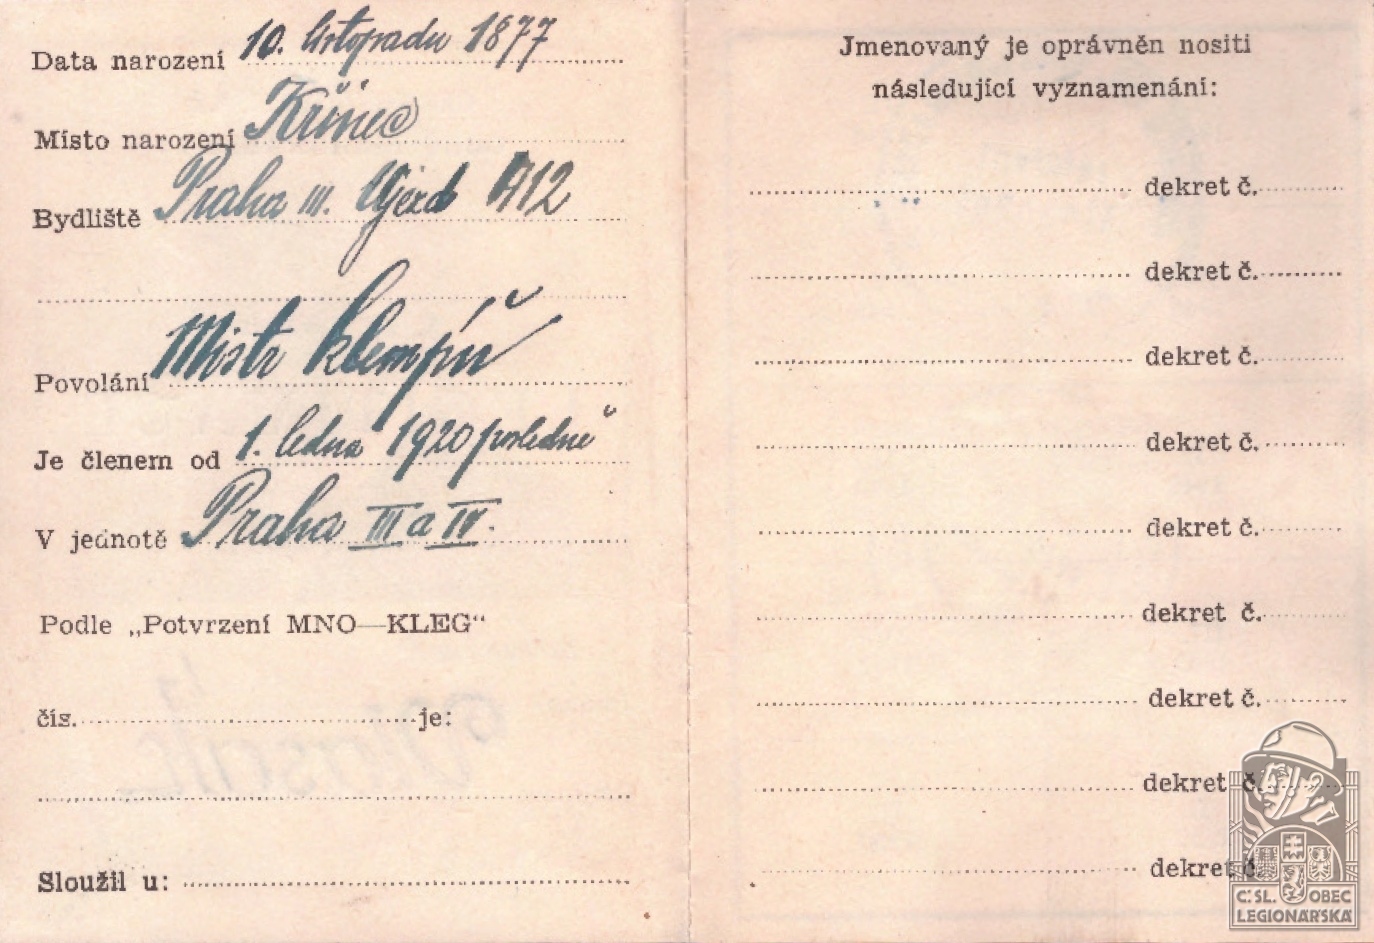 Data narození 10. listopadu 1877
Místo narození Křinec
Bydliště Praha III. Újezd 412
Povolání Mistr klempíř
Je členem od 1. ledna 1920 posledně
V jednotě Praha III a IV.
Podle „Potvrzení MNO—KLEG“
čís. je:
Sloužil u:
Jmenovaný je oprávněn nositi
následující vyznamenání:
dekret č.
dekret č.
dekret č.
dekret č.
dekret č.
dekret č.
dekret č.
dekret č.
dekret č.
Č. SL. OBEC
LEGIONÁŘSKÁ